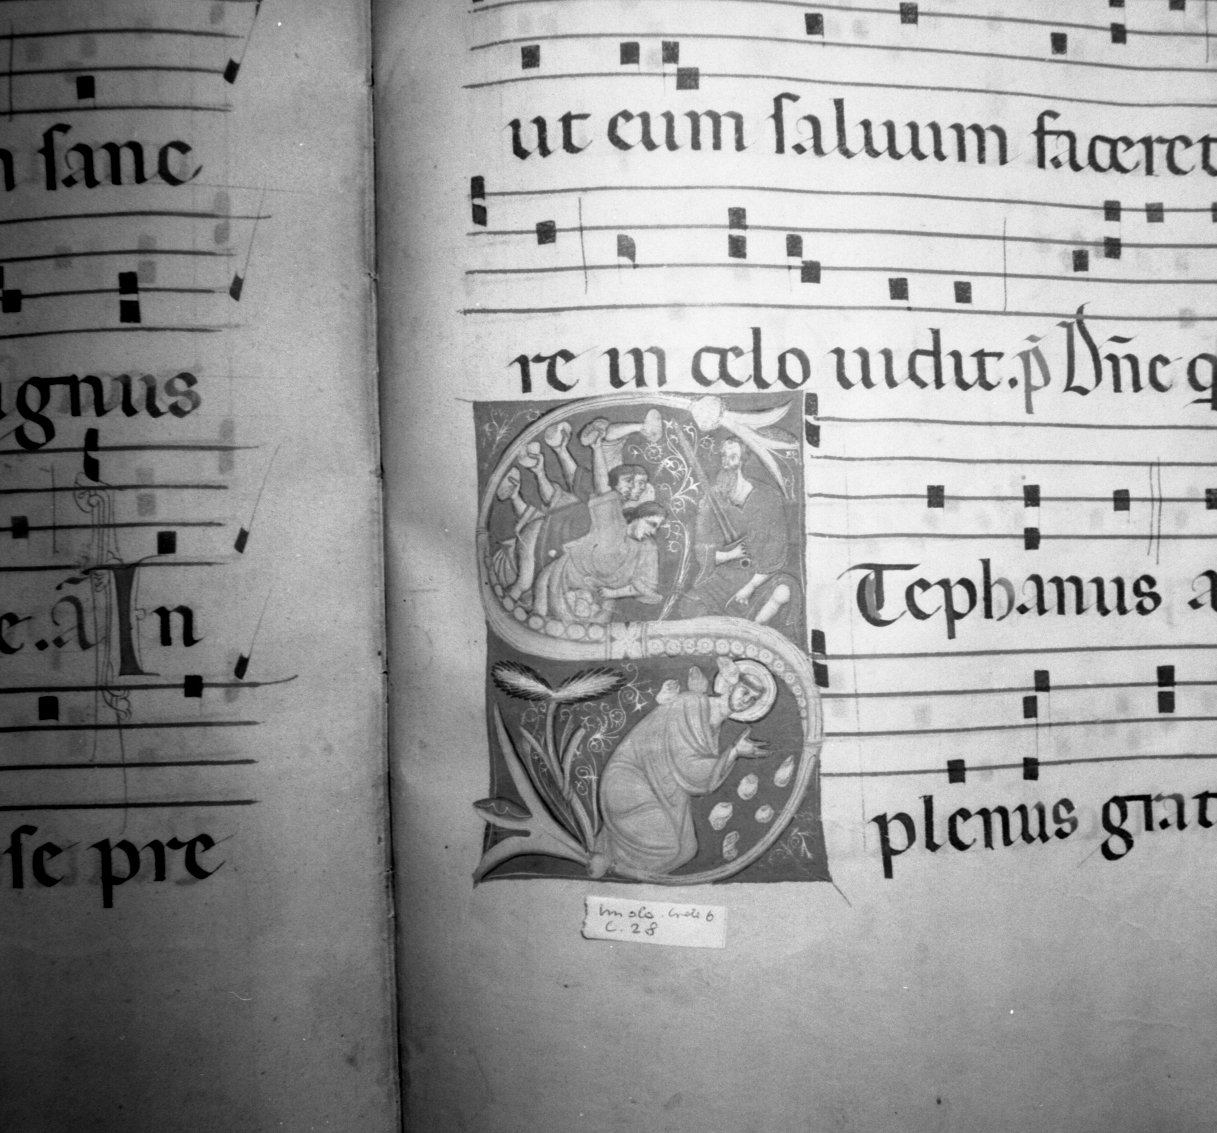 sanc
ignus
In
se pre
ut eum saluum faceret
re in cœlo uidit. p̃ Dñe q
STephanus a
plenus grat
Imola. Corale 6
C. 28